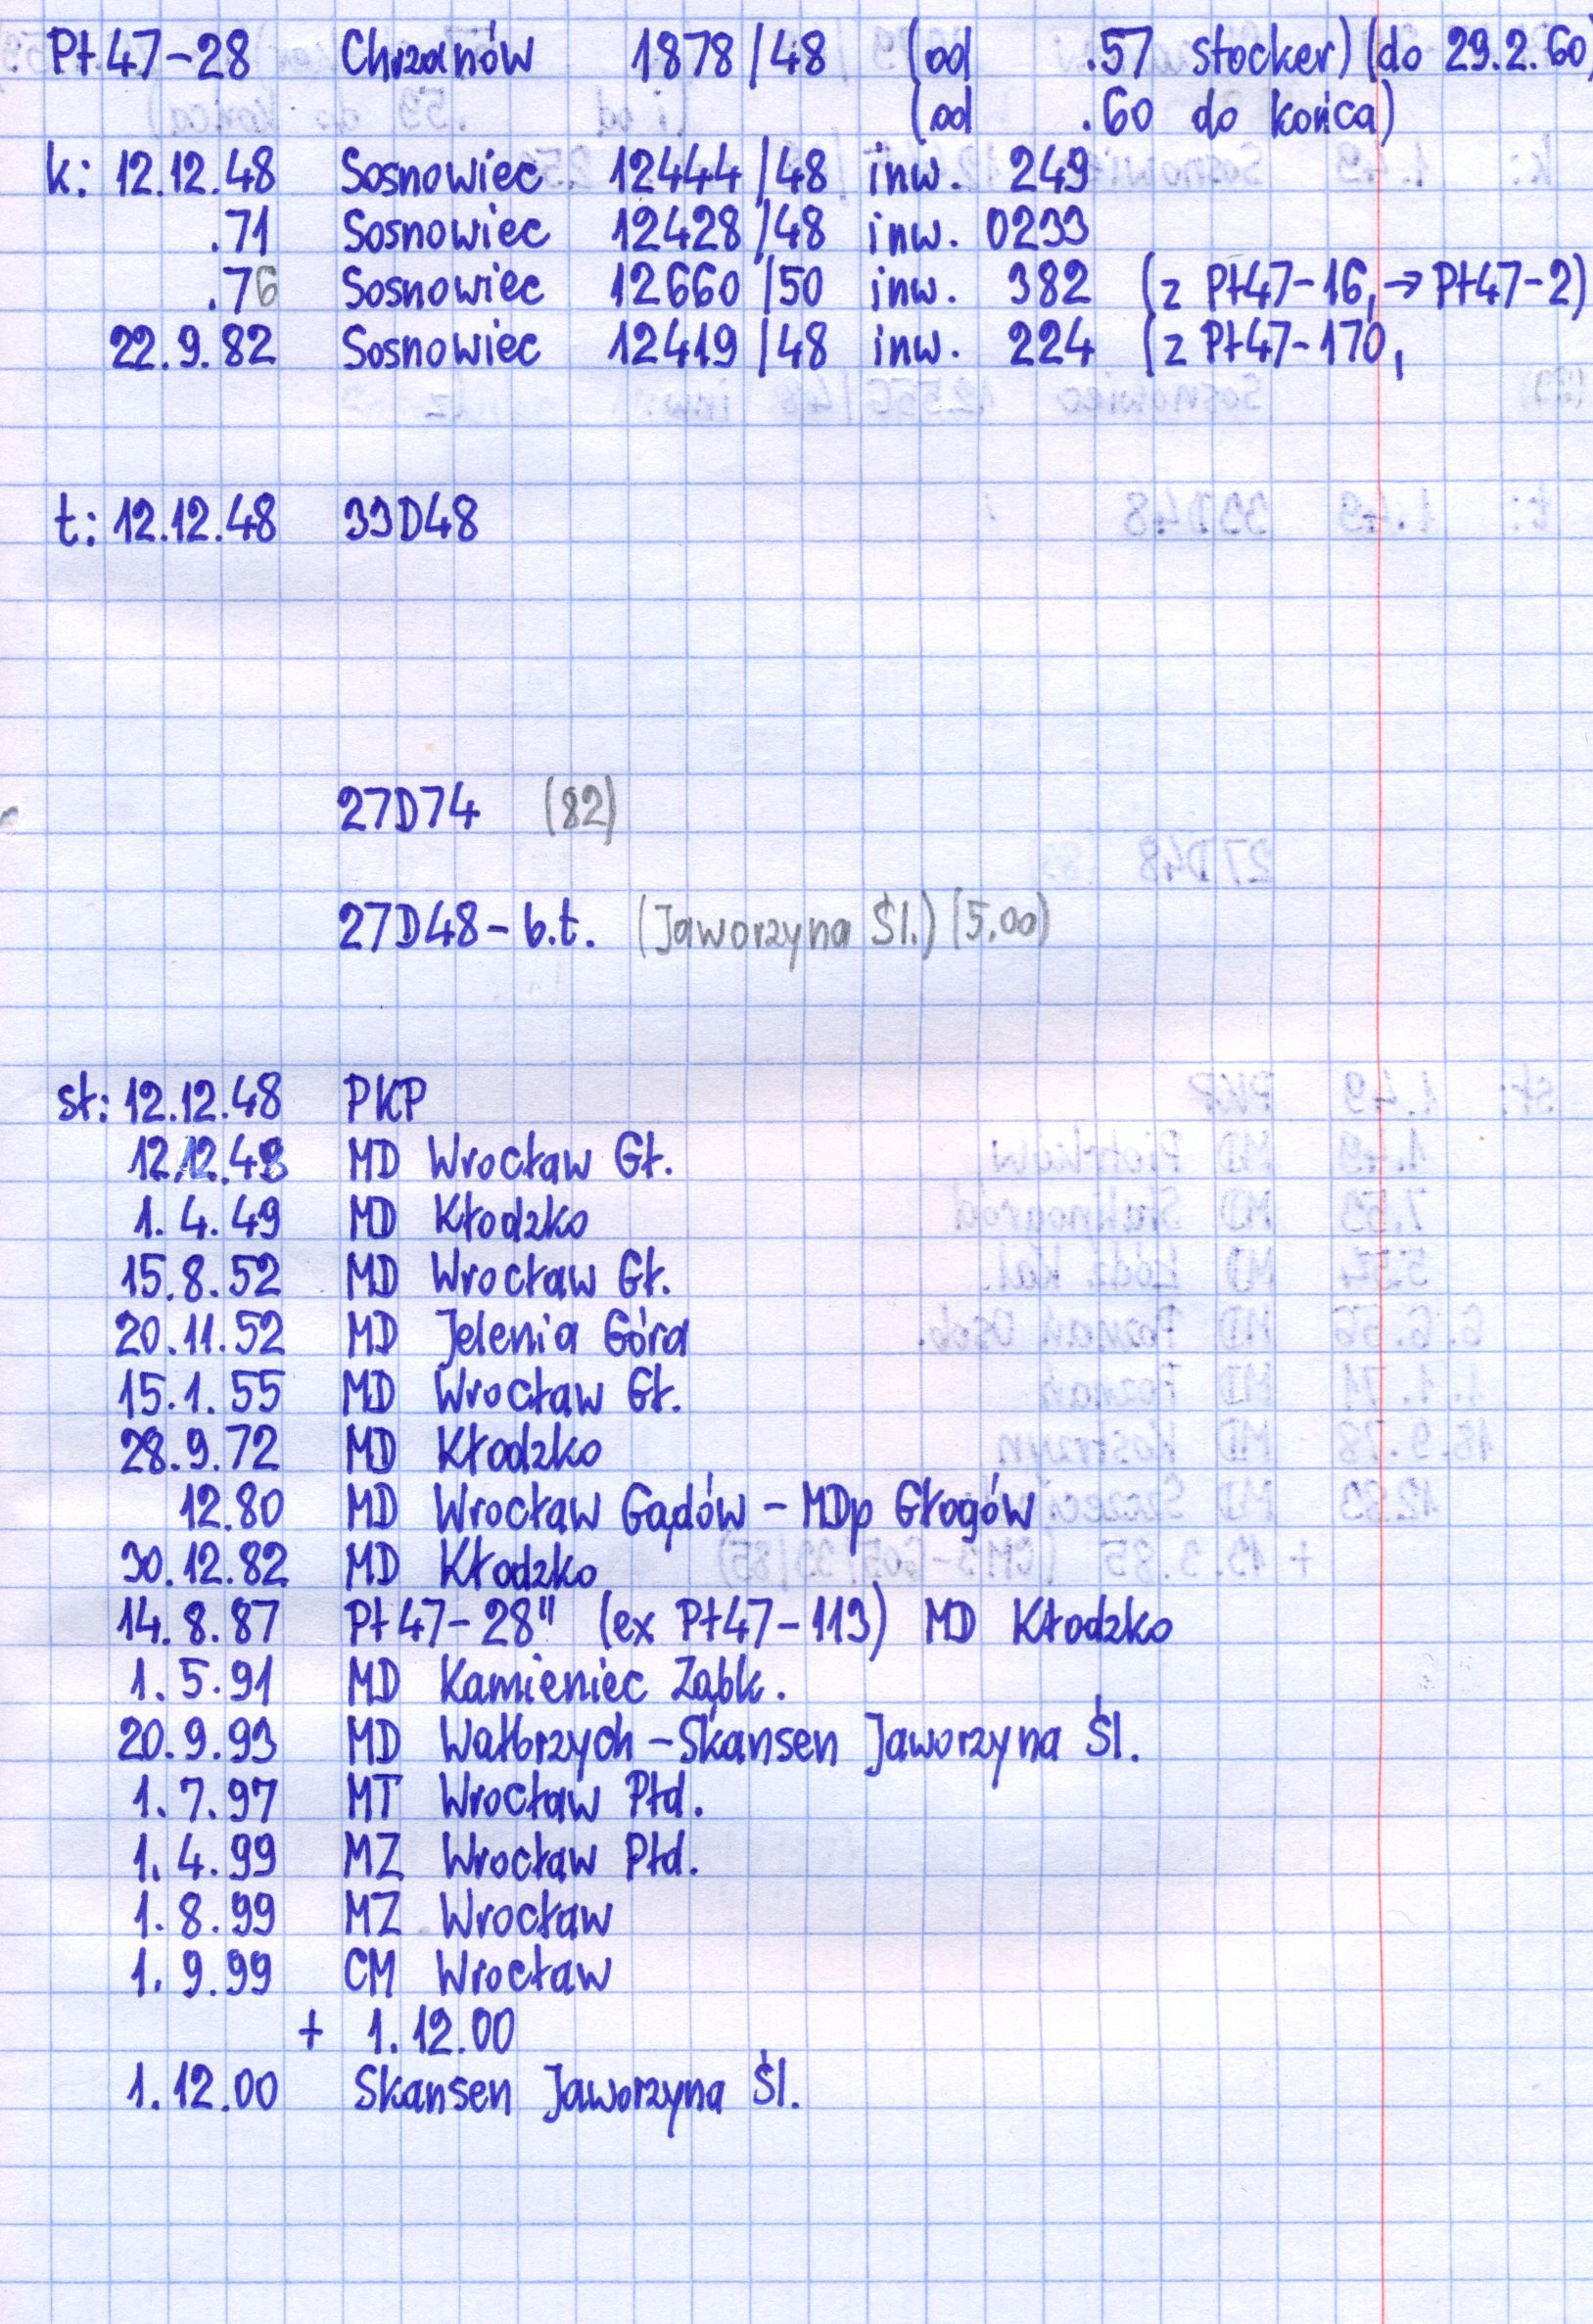 Pt47-28 Chrzanów 1878/48 (od .57 stocker) (do 29.2.60)
(od .60 do końca)
k: 12.12.48 Sosnowiec 12444/48 inw. 249
.71 Sosnowiec 12428/48 inw. 0233
.76 Sosnowiec 12660/50 inw. 382 (z Pt47-16, → Pt47-2)
22.9.82 Sosnowiec 12419/48 inw. 224 (z Pt47-170,
t: 12.12.48 33D48
27D74 (82)
27D48 - b.t. (Jaworzyna Śl.) (5.00)
st: 12.12.48 PKP
12.12.48 MD Wrocław Gł.
1.4.49 MD Kłodzko
15.8.52 MD Wrocław Gł.
20.11.52 MD Jelenia Góra
15.1.55 MD Wrocław Gł.
28.9.72 MD Kłodzko
12.80 MD Wrocław Gądów - MDp Głogów
30.12.82 MD Kłodzko
14.8.87 Pt47-28" (ex Pt47-113) MD Kłodzko
1.5.91 MD Kamieniec Ząbk.
20.9.93 MD Wałbrzych - Skansen Jaworzyna Śl.
1.7.97 MT Wrocław Płd.
1.4.99 MZ Wrocław Płd.
1.8.99 MZ Wrocław
1.9.99 CM Wrocław
+ 1.12.00
1.12.00 Skansen Jaworzyna Śl.